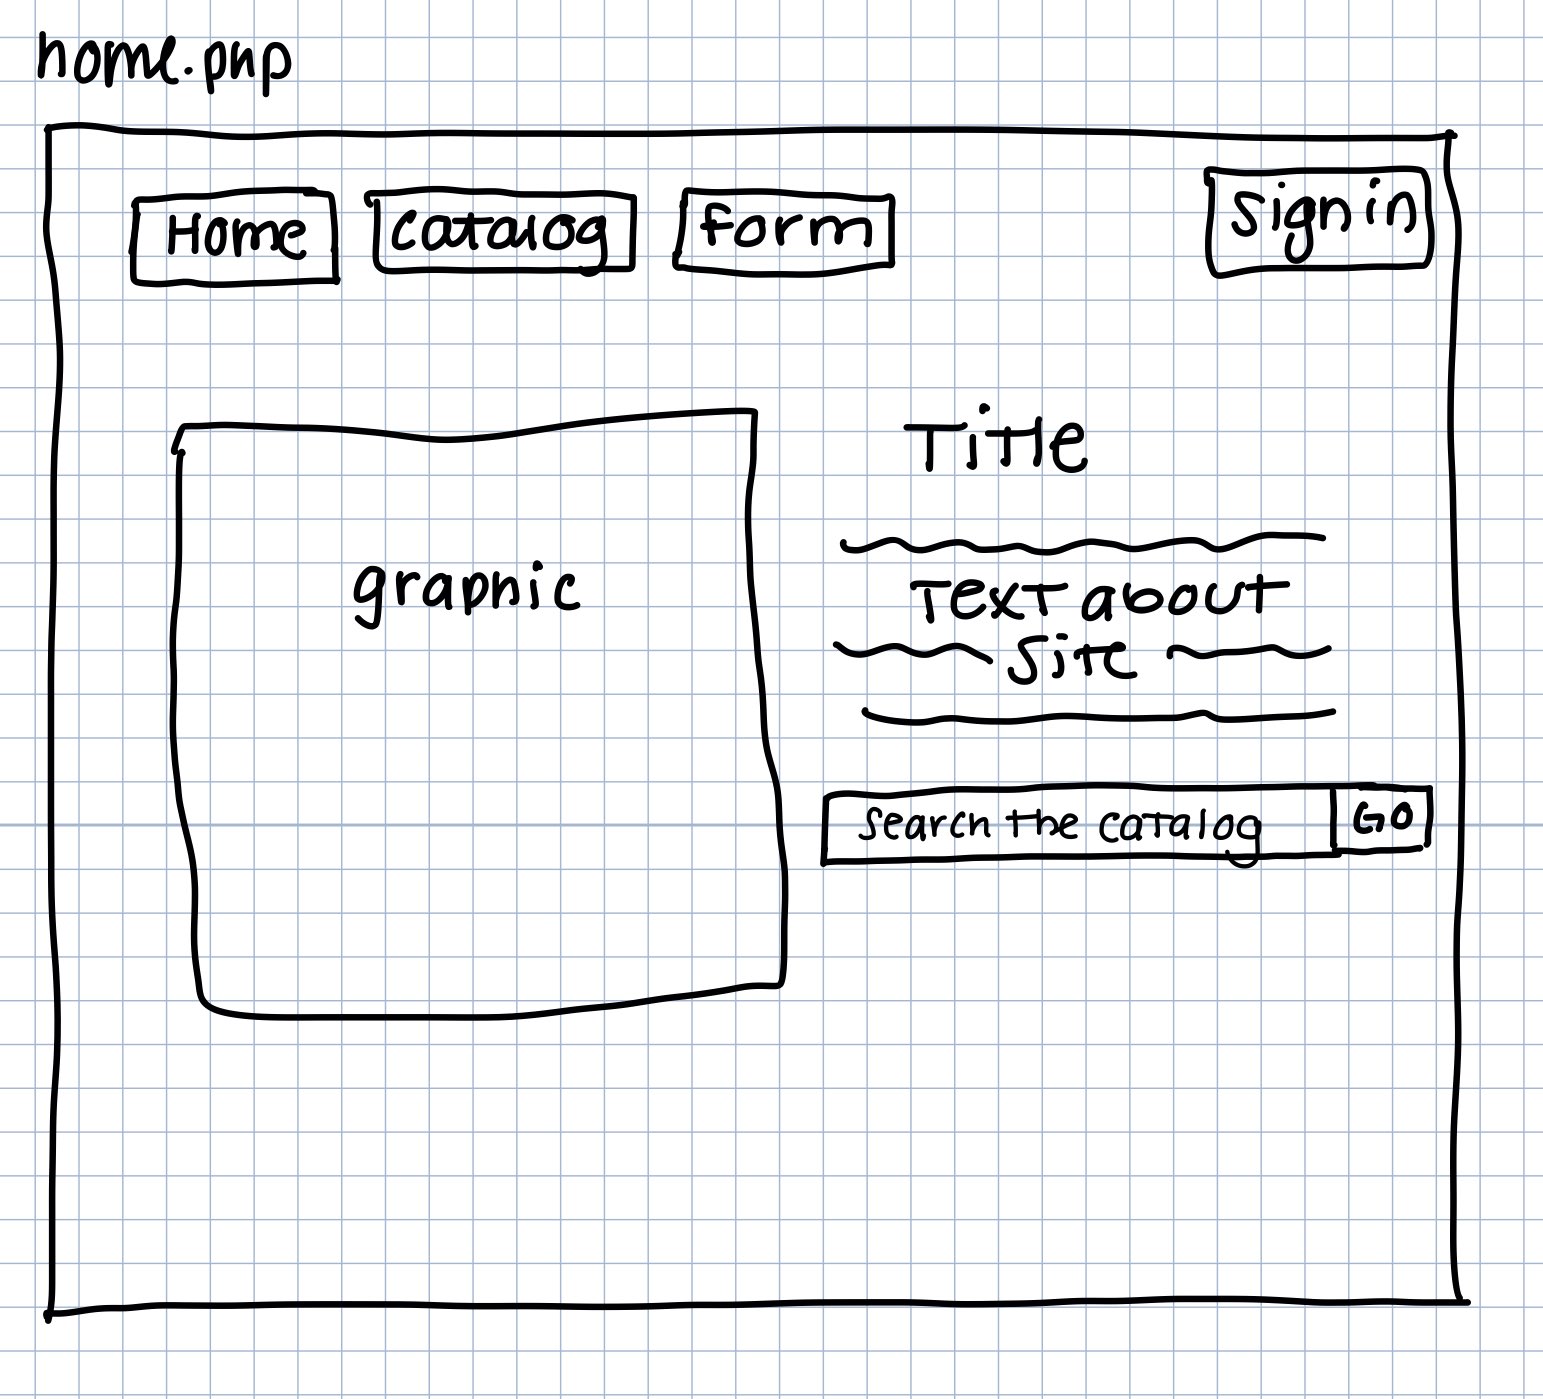 home.php
Home catalog form sign in
Title
graphic
Text about
site
search the catalog GO